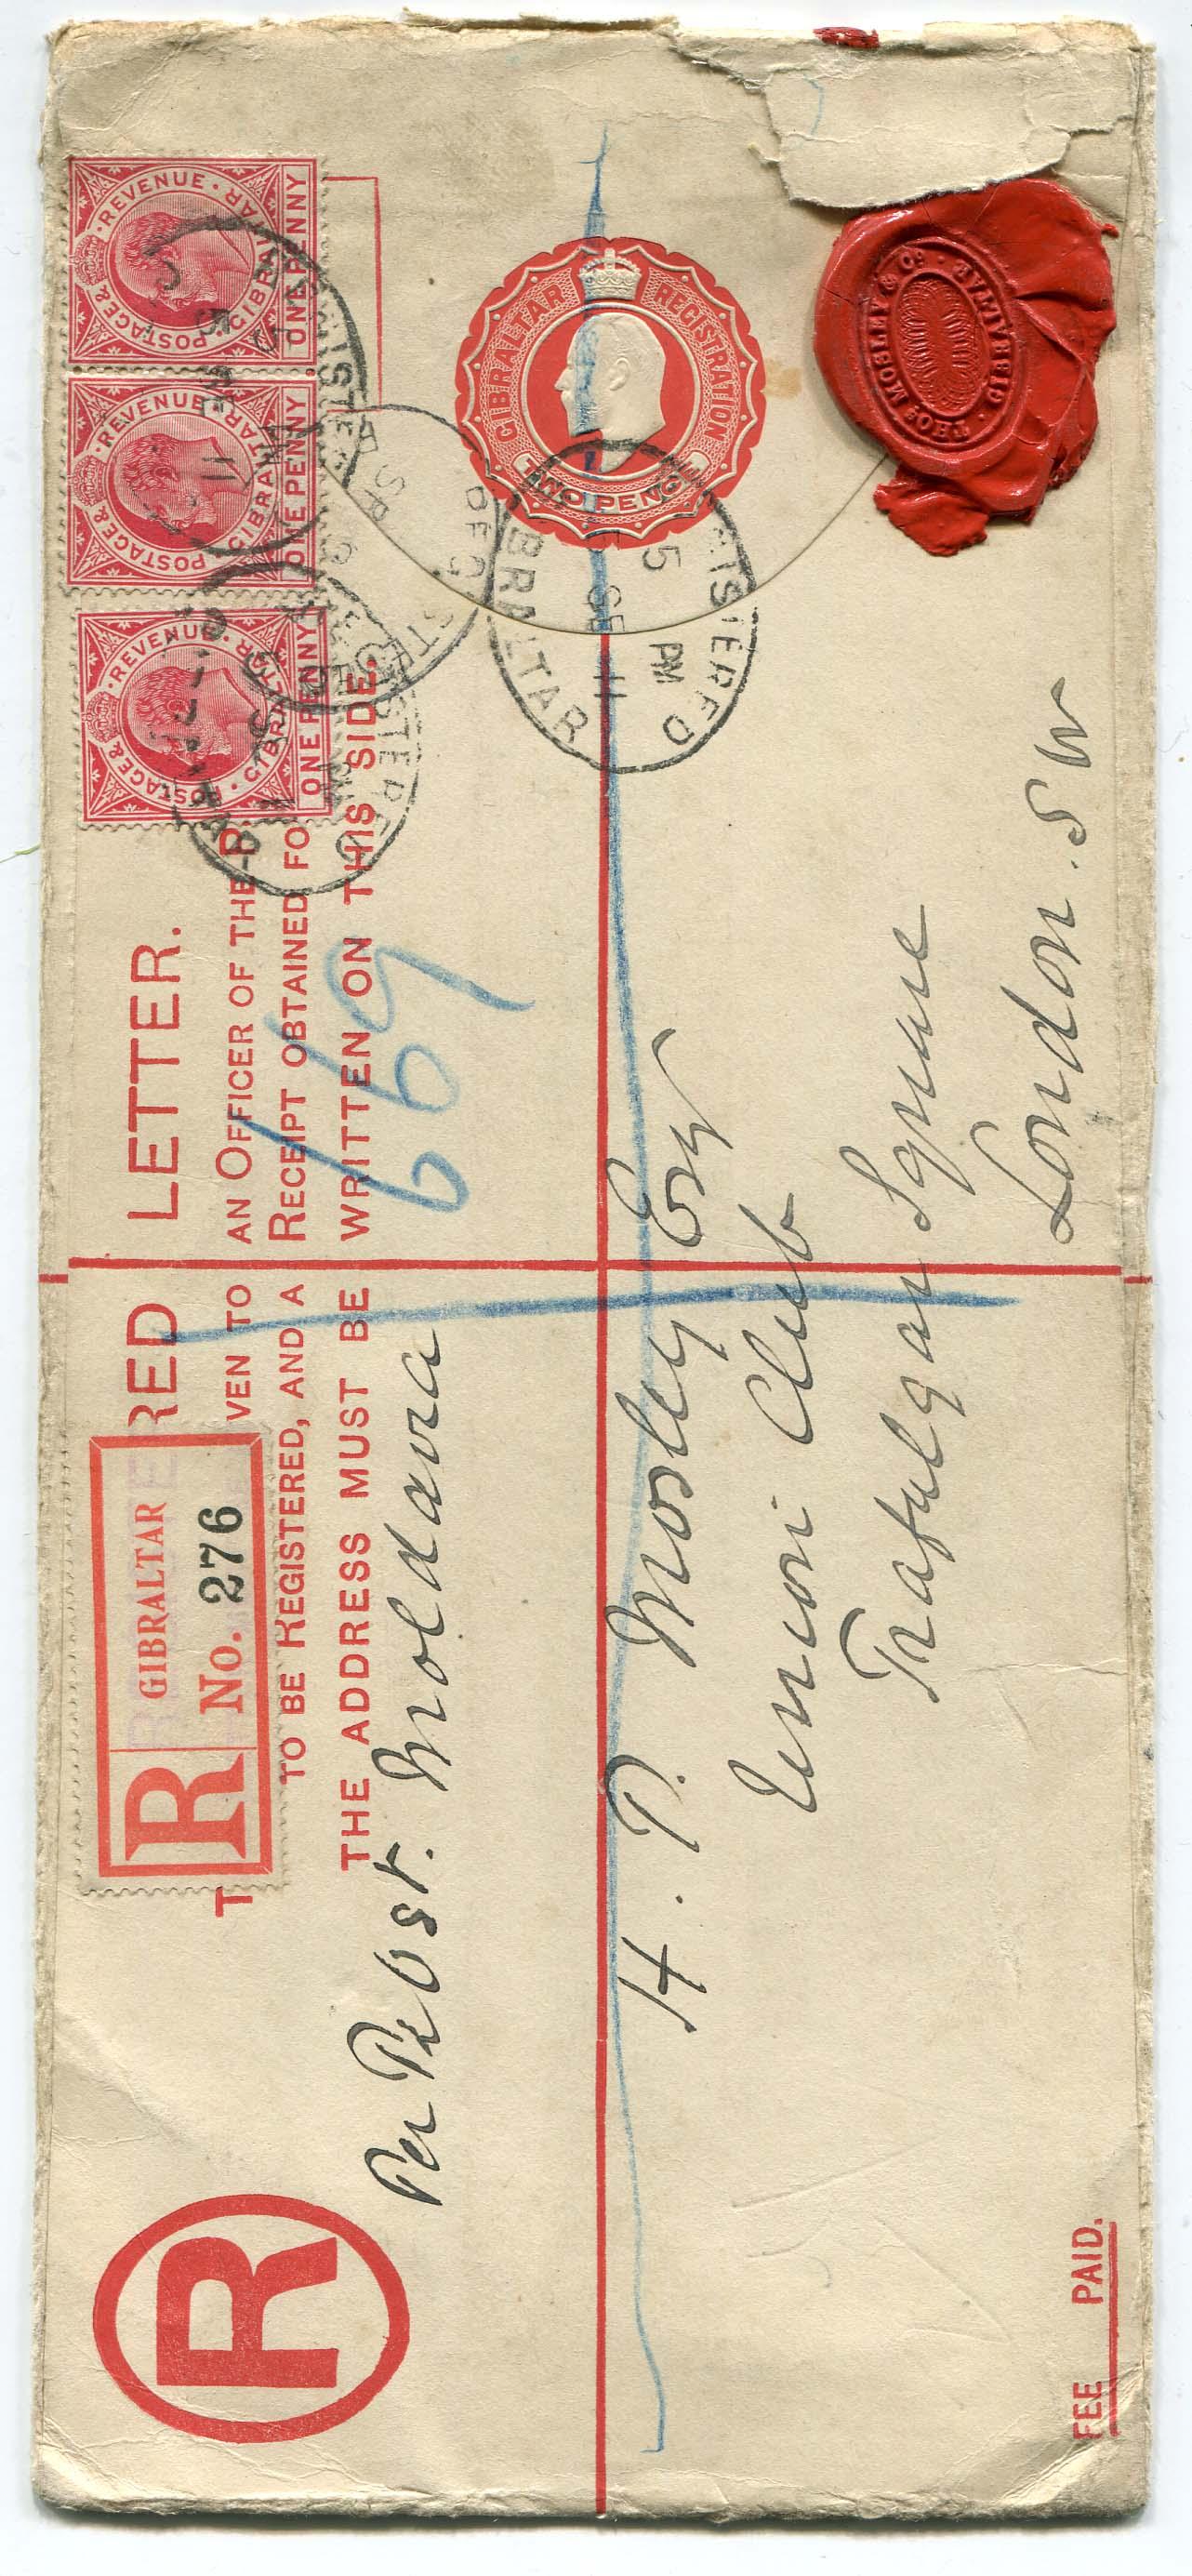 R
REVENUE
POSTAGE &
GIBRALTAR
ONE PENNY
REVENUE
POSTAGE &
GIBRALTAR
ONE PENNY
REVENUE
POSTAGE &
GIBRALTAR
ONE PENNY
RED LETTER.
R GIBRALTAR
No. 276
T VEN TO AN OFFICER OF THE P
TO BE REGISTERED, AND A RECEIPT OBTAINED FO
THE ADDRESS MUST BE WRITTEN ON THIS SIDE.
669
Per P&Ost. Moldavia
GIBRALTAR REGISTRATION
TWO PENCE
REGISTERED
5 PM
SE 11
GIBRALTAR
H. P. Mosley Esq
Union Club
Trafalgar Square
London. S W
THOS MOSLEY & CO. GIBRALTAR.
FEE PAID.